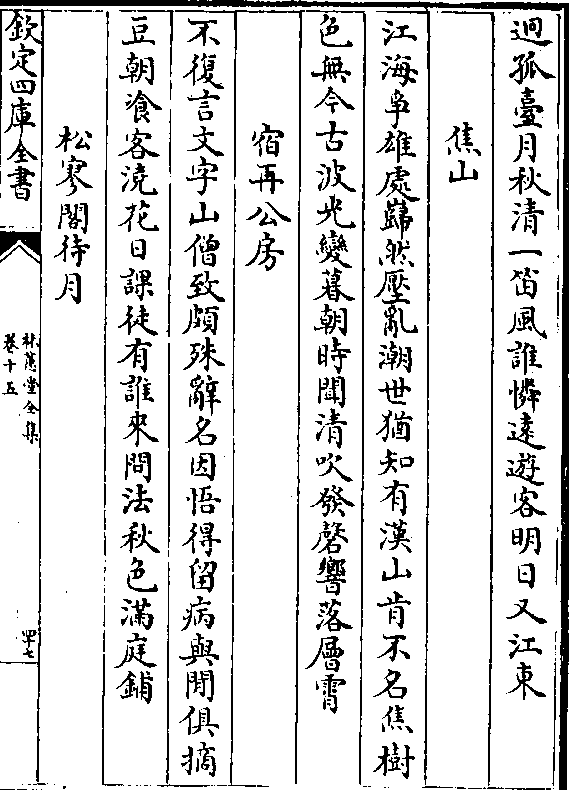 迥孤臺月秋清一笛風誰憐遠遊客明日又江東
焦山
江海爭雄處巋然壓亂潮世猶知有漢山肯不名焦樹
色無今古波光變暮朝時聞清吹發磬響落層霄
宿再公房
不復言文字山僧致頗殊辭名因悟得留病與閒俱摘
豆朝飡客澆花日課徒有誰來問法秋色滿庭鋪
松寥閣待月
欽定四庫全書
林蕙堂全集
卷十五
四十七